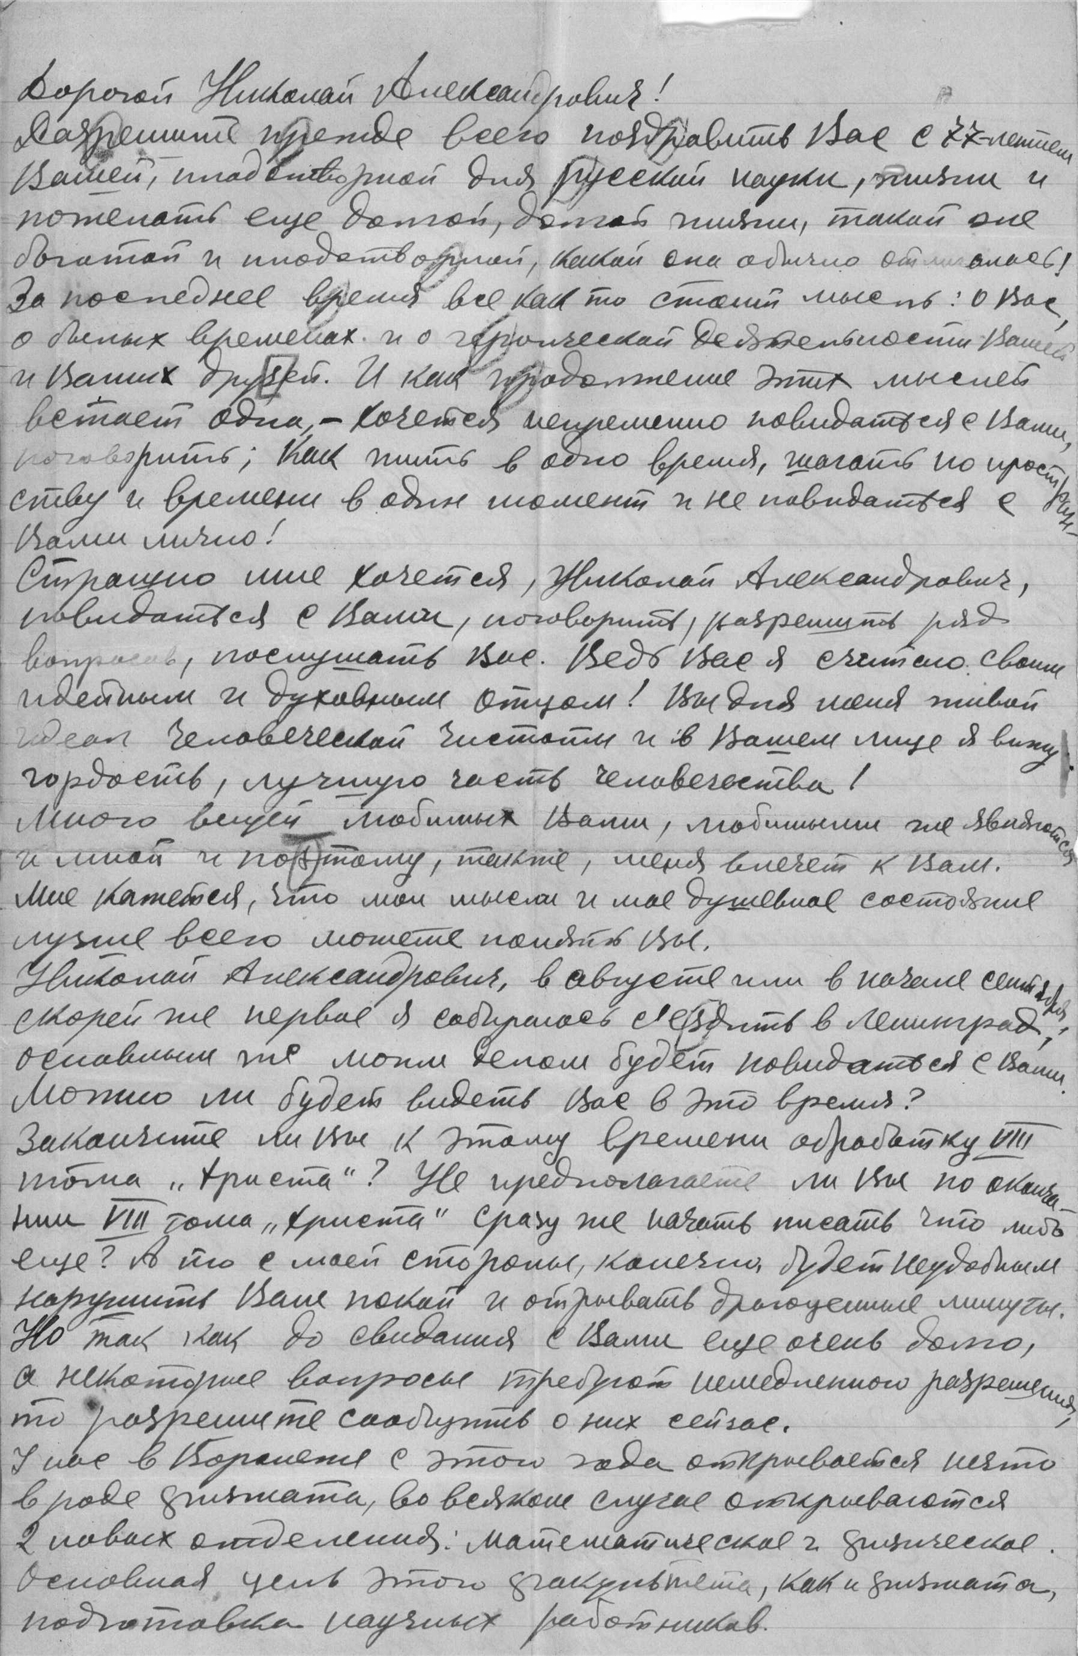 Дорогой Николай Александрович!
Разрешите прежде всего поздравить Вас с 77-летием
Вашей, плодотворной для русской науки, жизни и
пожелать еще долгой, долгой жизни, такой же
богатой и плодотворной, какой она обычно отличалась!
За последнее время все как то стоит мысль: о Вас,
о былых временах и о героической деятельности Вашей
и Ваших друзей. И как продолжение этих мыслей
встает одна, – хочется непременно повидаться с Вами,
поговорить; Как жить в одно время, шагать по простран-
ству и времени в один момент и не повидаться с
Вами лично!
Страшно мне хочется, Николай Александрович,
повидаться с Вами, поговорить, разрешить ряд
вопросов, послушать Вас. Ведь Вас я считаю своим
идейным и духовным отцом! Вы для меня живой
идеал человеческой чистоты и в Вашем лице я вижу
гордость, лучшую часть человечества!
Много вещей любимых Вами, любимыми же являются
и мной и поэтому, также, меня влечет к Вам.
Мне кажется, что мои мысли и мое душевное состояние
лучше всего можете понять Вы.
Николай Александрович, в августе или в начале сентября,
скорей же первое я собираюсь с'ездить в Ленинград,
основным же моим делом будет повидаться с Вами.
Можно ли будет видеть Вас в это время?
Закончите ли Вы к этому времени обработку VIII
тома „Христа"? Не предполагаете ли Вы по оконча-
нии VIII тома „Христа" сразу же начать писать что либо
еще? А то с моей стороны, конечно, будет неудобным
нарушить Ваш покой и отрывать драгоценные минуты.
Но так как до свидания с Вами еще очень долго,
а некоторые вопросы требуют немедленного разрешения,
то разрешите сообщить о них сейчас.
У нас в Воронеже с этого года открывается нечто
в роде физмата, во всяком случае открываются
2 новых отделения: математическое и физическое.
Основная цель этого факультета, как и физмата,
подготовка научных работников.